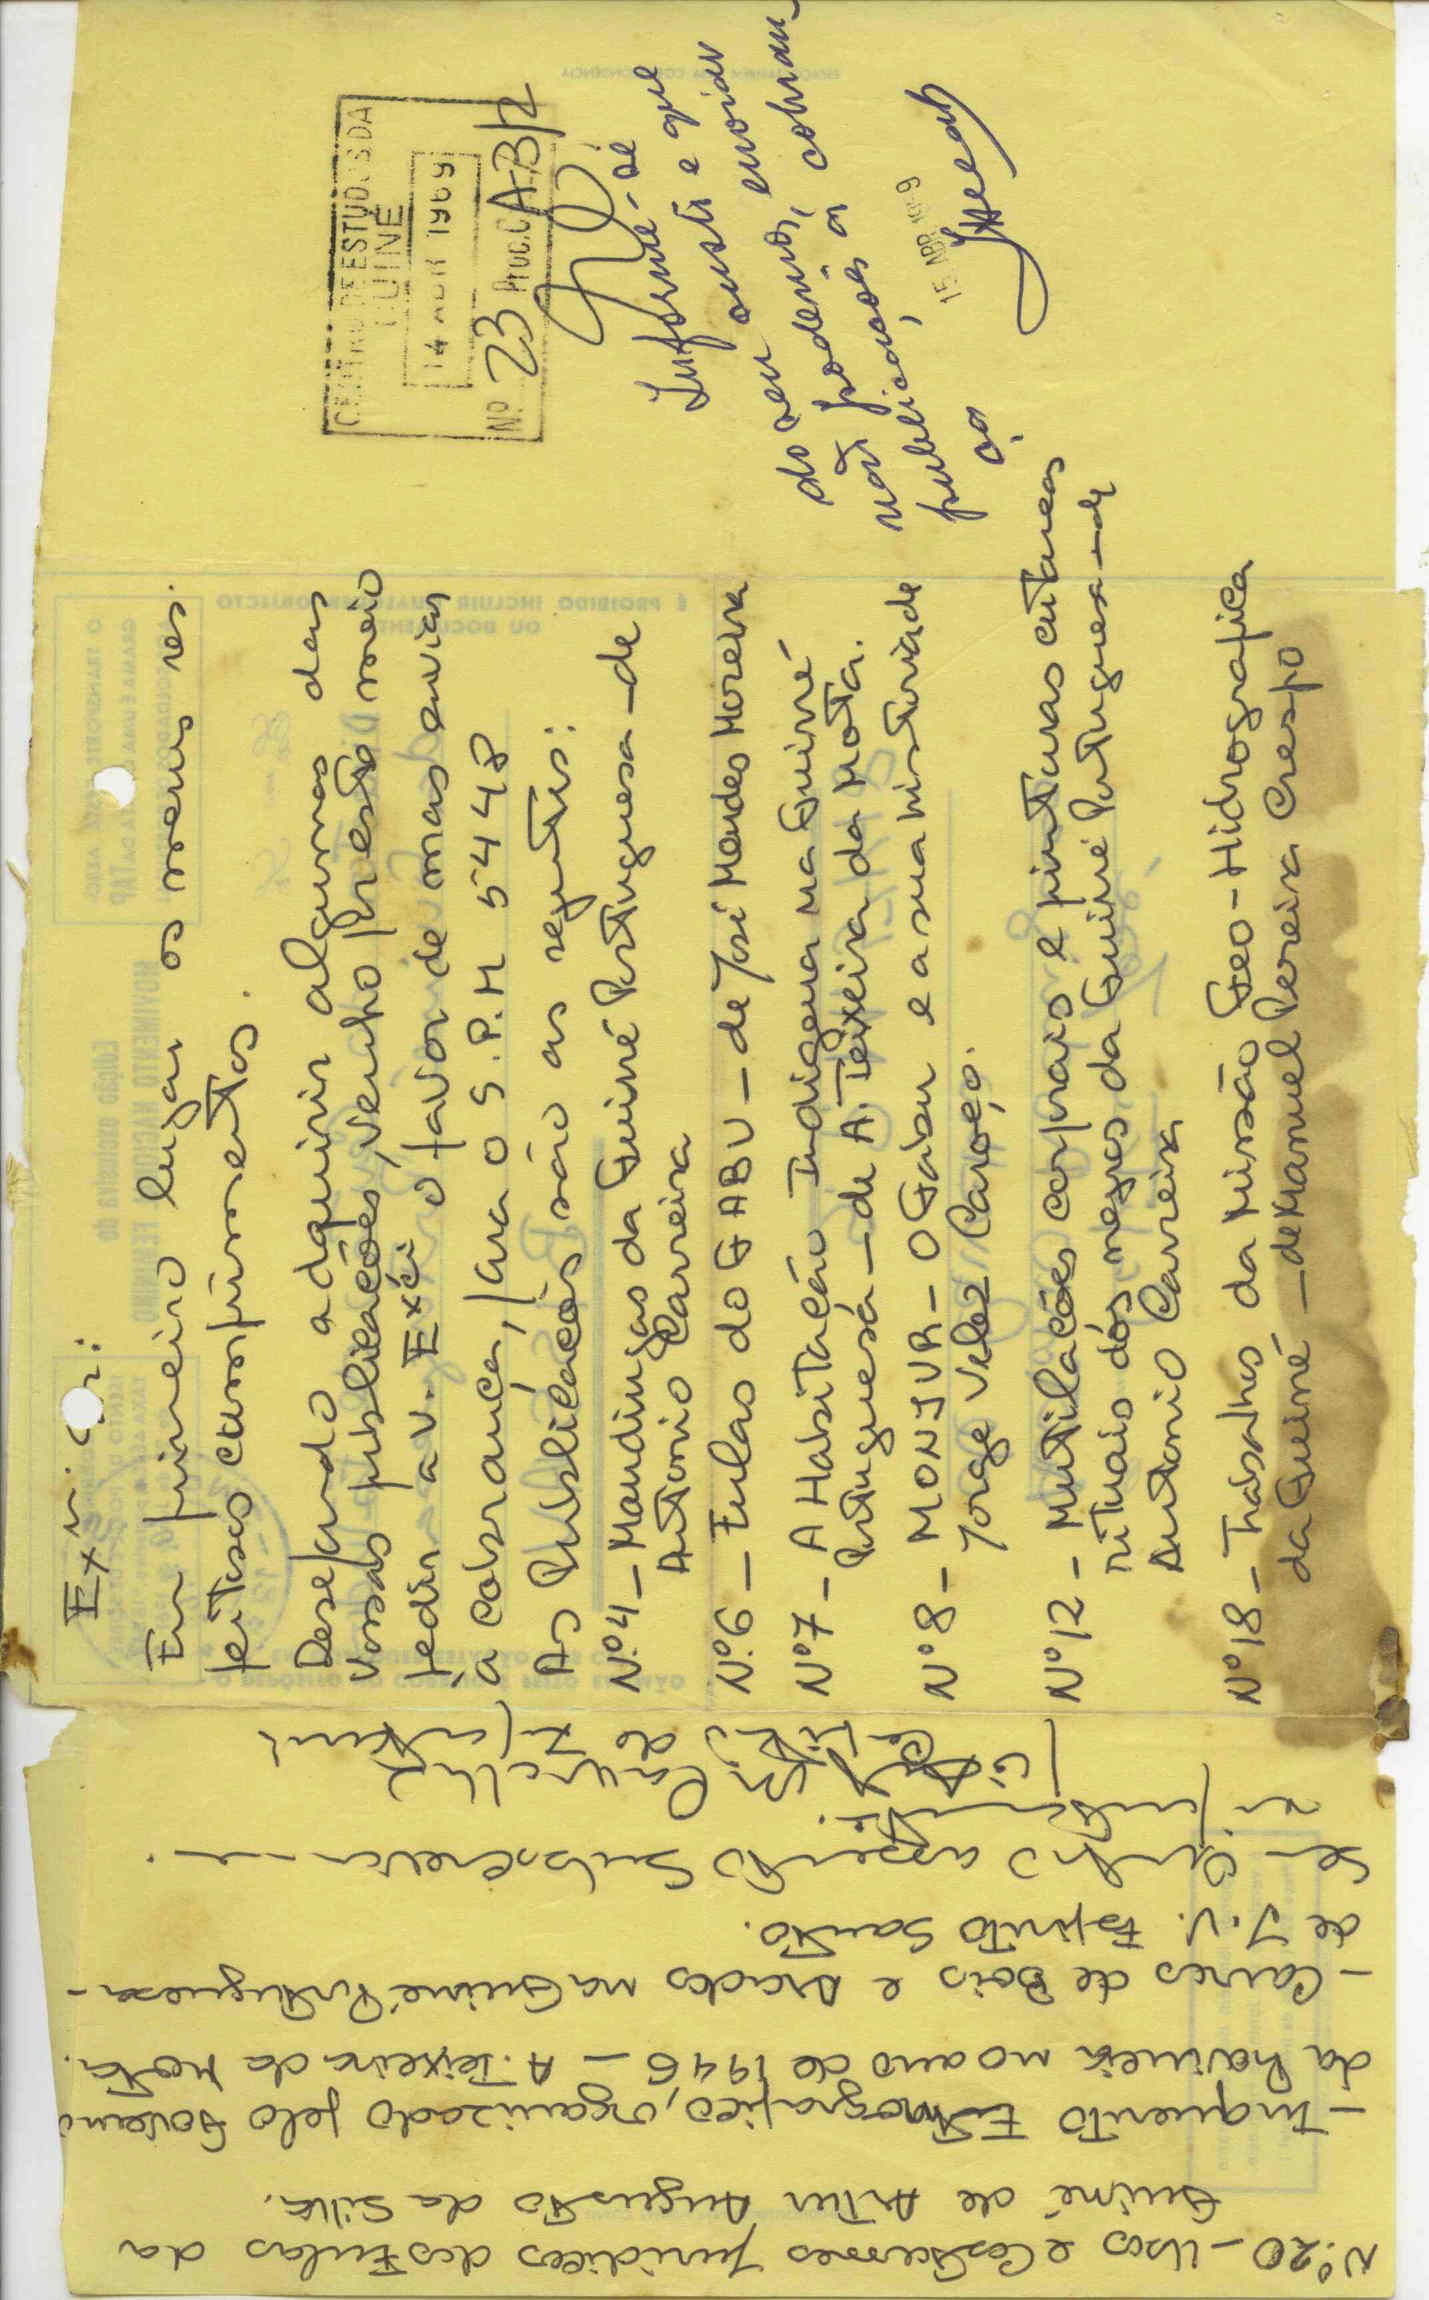 Exm. Sr:
Em primeiro lugar os meus res-
peitosos cumprimentos.
Desejando adquirir algumas das
Vossas publicações, venho por este meio
pedir a V. Exci o favor de mas enviar
à cobrança, para o S.P.M 5448
As Publicações são as seguintes:
Nº 4 - Mandingas da Guiné Portuguesa - de
António Carreira
Nº 6 - Fulas do GABU - de José Mendes Moreira
Nº 7 - A Habitação Indigena na Guiné
Portuguesa - de A. Teixeira da Mota.
Nº 8 - MONJUR - O Gabu e a sua história de
Jorge Velez Caroço.
Nº 12 - Mutilações corporais e pinturas cutaneas
rituais dos negros da Guiné Portuguesa - de
António Carreira
Nº 18 - Trabalhos da Missão Geo-Hidrografica
da Guiné - de Manuel Pereira Crespo
Nº 20 - Usos e Costumes Juridicos dos Fulas da
Guiné de Artur Augusto da Silva.
- Inquerito Etnografico, organizado pelo Governo
da Provincia no ano de 1946 - A. Teixeira da Mota.
- Caires de Bois e Arados na Guiné Portuguesa -
de J.V. Espirito Santo.
Sem outro assunto Subscrevo-me
CENTRO DE ESTUDOS DA
GUINÉ
14 ABR 1969
Nº 23 Proc. C A-B/2
Informe-se
o custo e que
do seu enviar
não podemos,
publicações à cobran-
ça.
15 ABR 1969
É PROIBIDO INCLUIR QUALQUER OBJECTO
OU DOCUMENTO
MOVIMENTO NACIONAL FEMININO